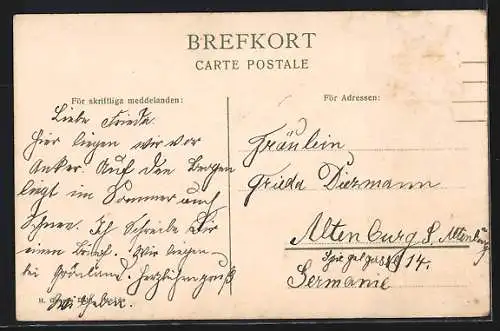 BREFKORT
CARTE POSTALE
För skriftliga meddelanden:
För Adressen:
Liebe Frieda
Hier liegen wir vor
Anker. Auf den Bergen
liegt im Sommer auch
Schnee. Ich Schreibe Dir
einen Brief. Wir liegen
bei Grönland. Herzlichen gruß
Fräulein
Frieda Diezmann
Altenburg S. Altenburg
Spiegelgasse 14.
Germanie